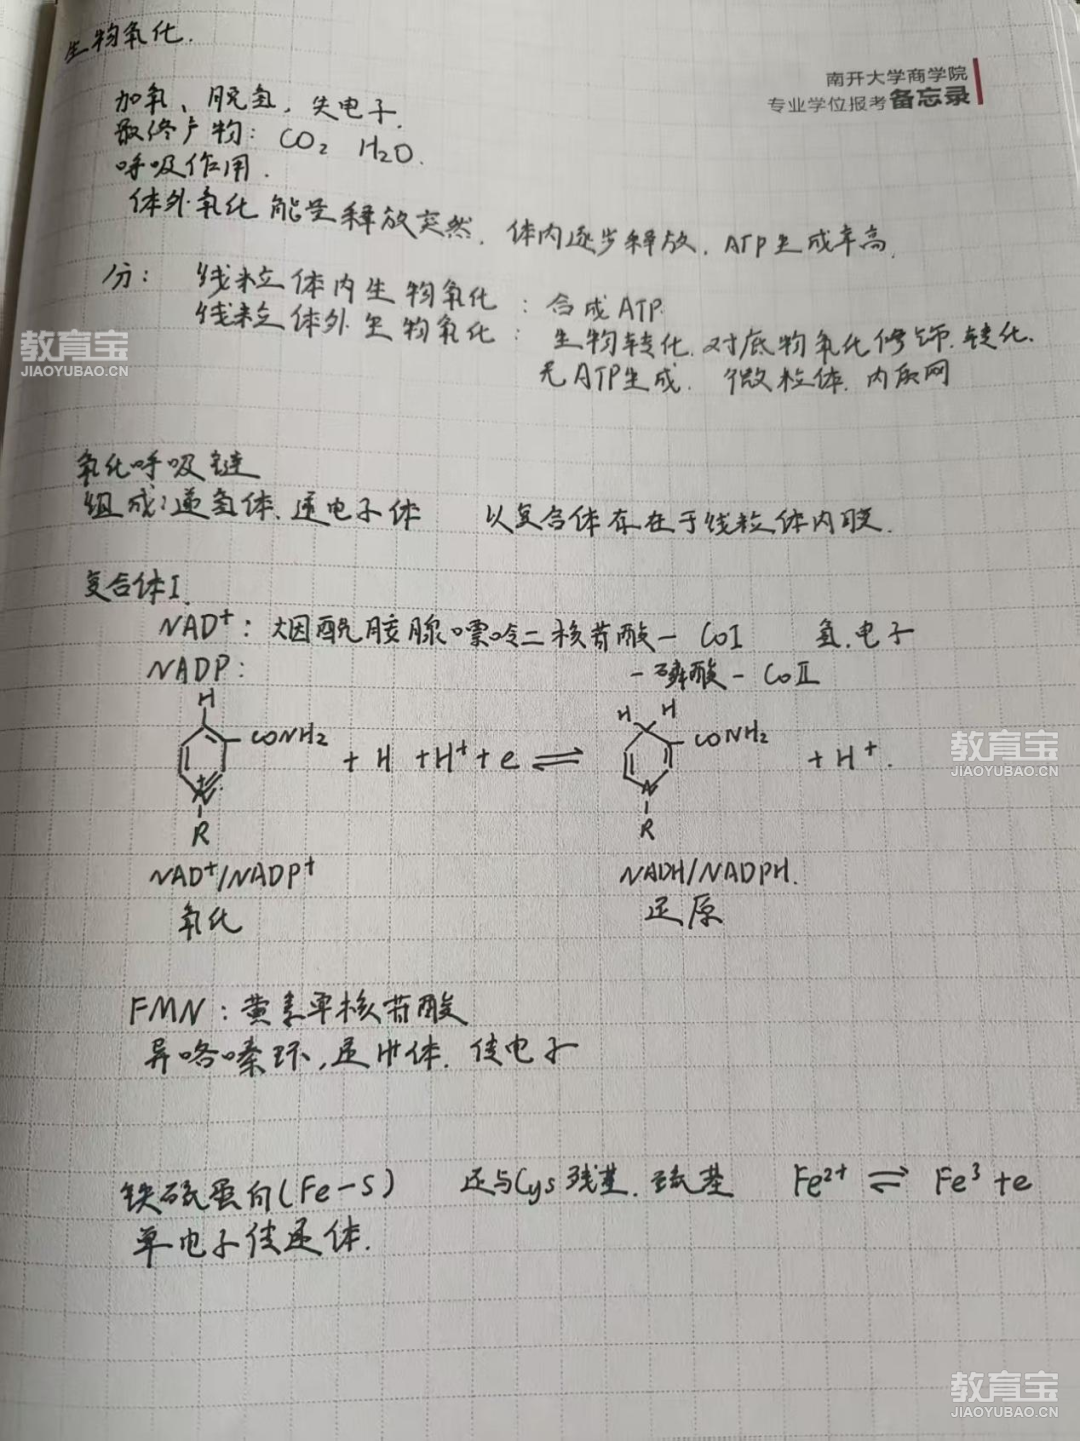 生物氧化.
南开大学商学院
专业学位报考备忘录
加氧、脱氢,失电子.
最终产物: CO₂ H₂O.
呼吸作用.
体外氧化能量释放突然. 体内逐步释放. ATP生成率高.
分: 线粒体内生物氧化: 合成ATP.
线粒体外生物氧化: 生物转化. 对底物氧化修饰. 转化.
无ATP生成. 微粒体. 内质网
教育宝
JIAOYUBAO.CN
氧化呼吸链
组成: 递氢体、递电子体 以复合体存在于线粒体内膜.
复合体I
NAD⁺: 烟酰胺腺嘌呤二核苷酸 — CoI 氢.电子
NADP: — 磷酸 — CoⅡ
H
CONH₂
N
R
+ H + H⁺ + e ⇌
H H
CONH₂
N
R
+ H⁺.
教育宝
JIAOYUBAO.CN
NAD⁺/NADP⁺ NADH/NADPH.
氧化 还原
FMN: 黄素单核苷酸
异咯嗪环, 递H体. 传电子
铁硫蛋白(Fe-S) 还与Cys残基. 巯基 Fe²⁺ ⇌ Fe³ + e
单电子传递体.
教育宝
JIAOYUBAO.CN